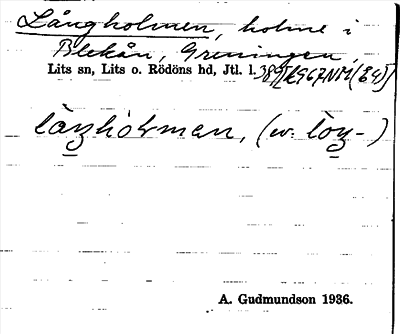 Långholmen, holme i
Blekån, Greningen
Lits sn, Lits o. Rödöns hd, Jtl. l.
låŋhoḷmen, (ev. lòŋ-)
A. Gudmundson 1936.